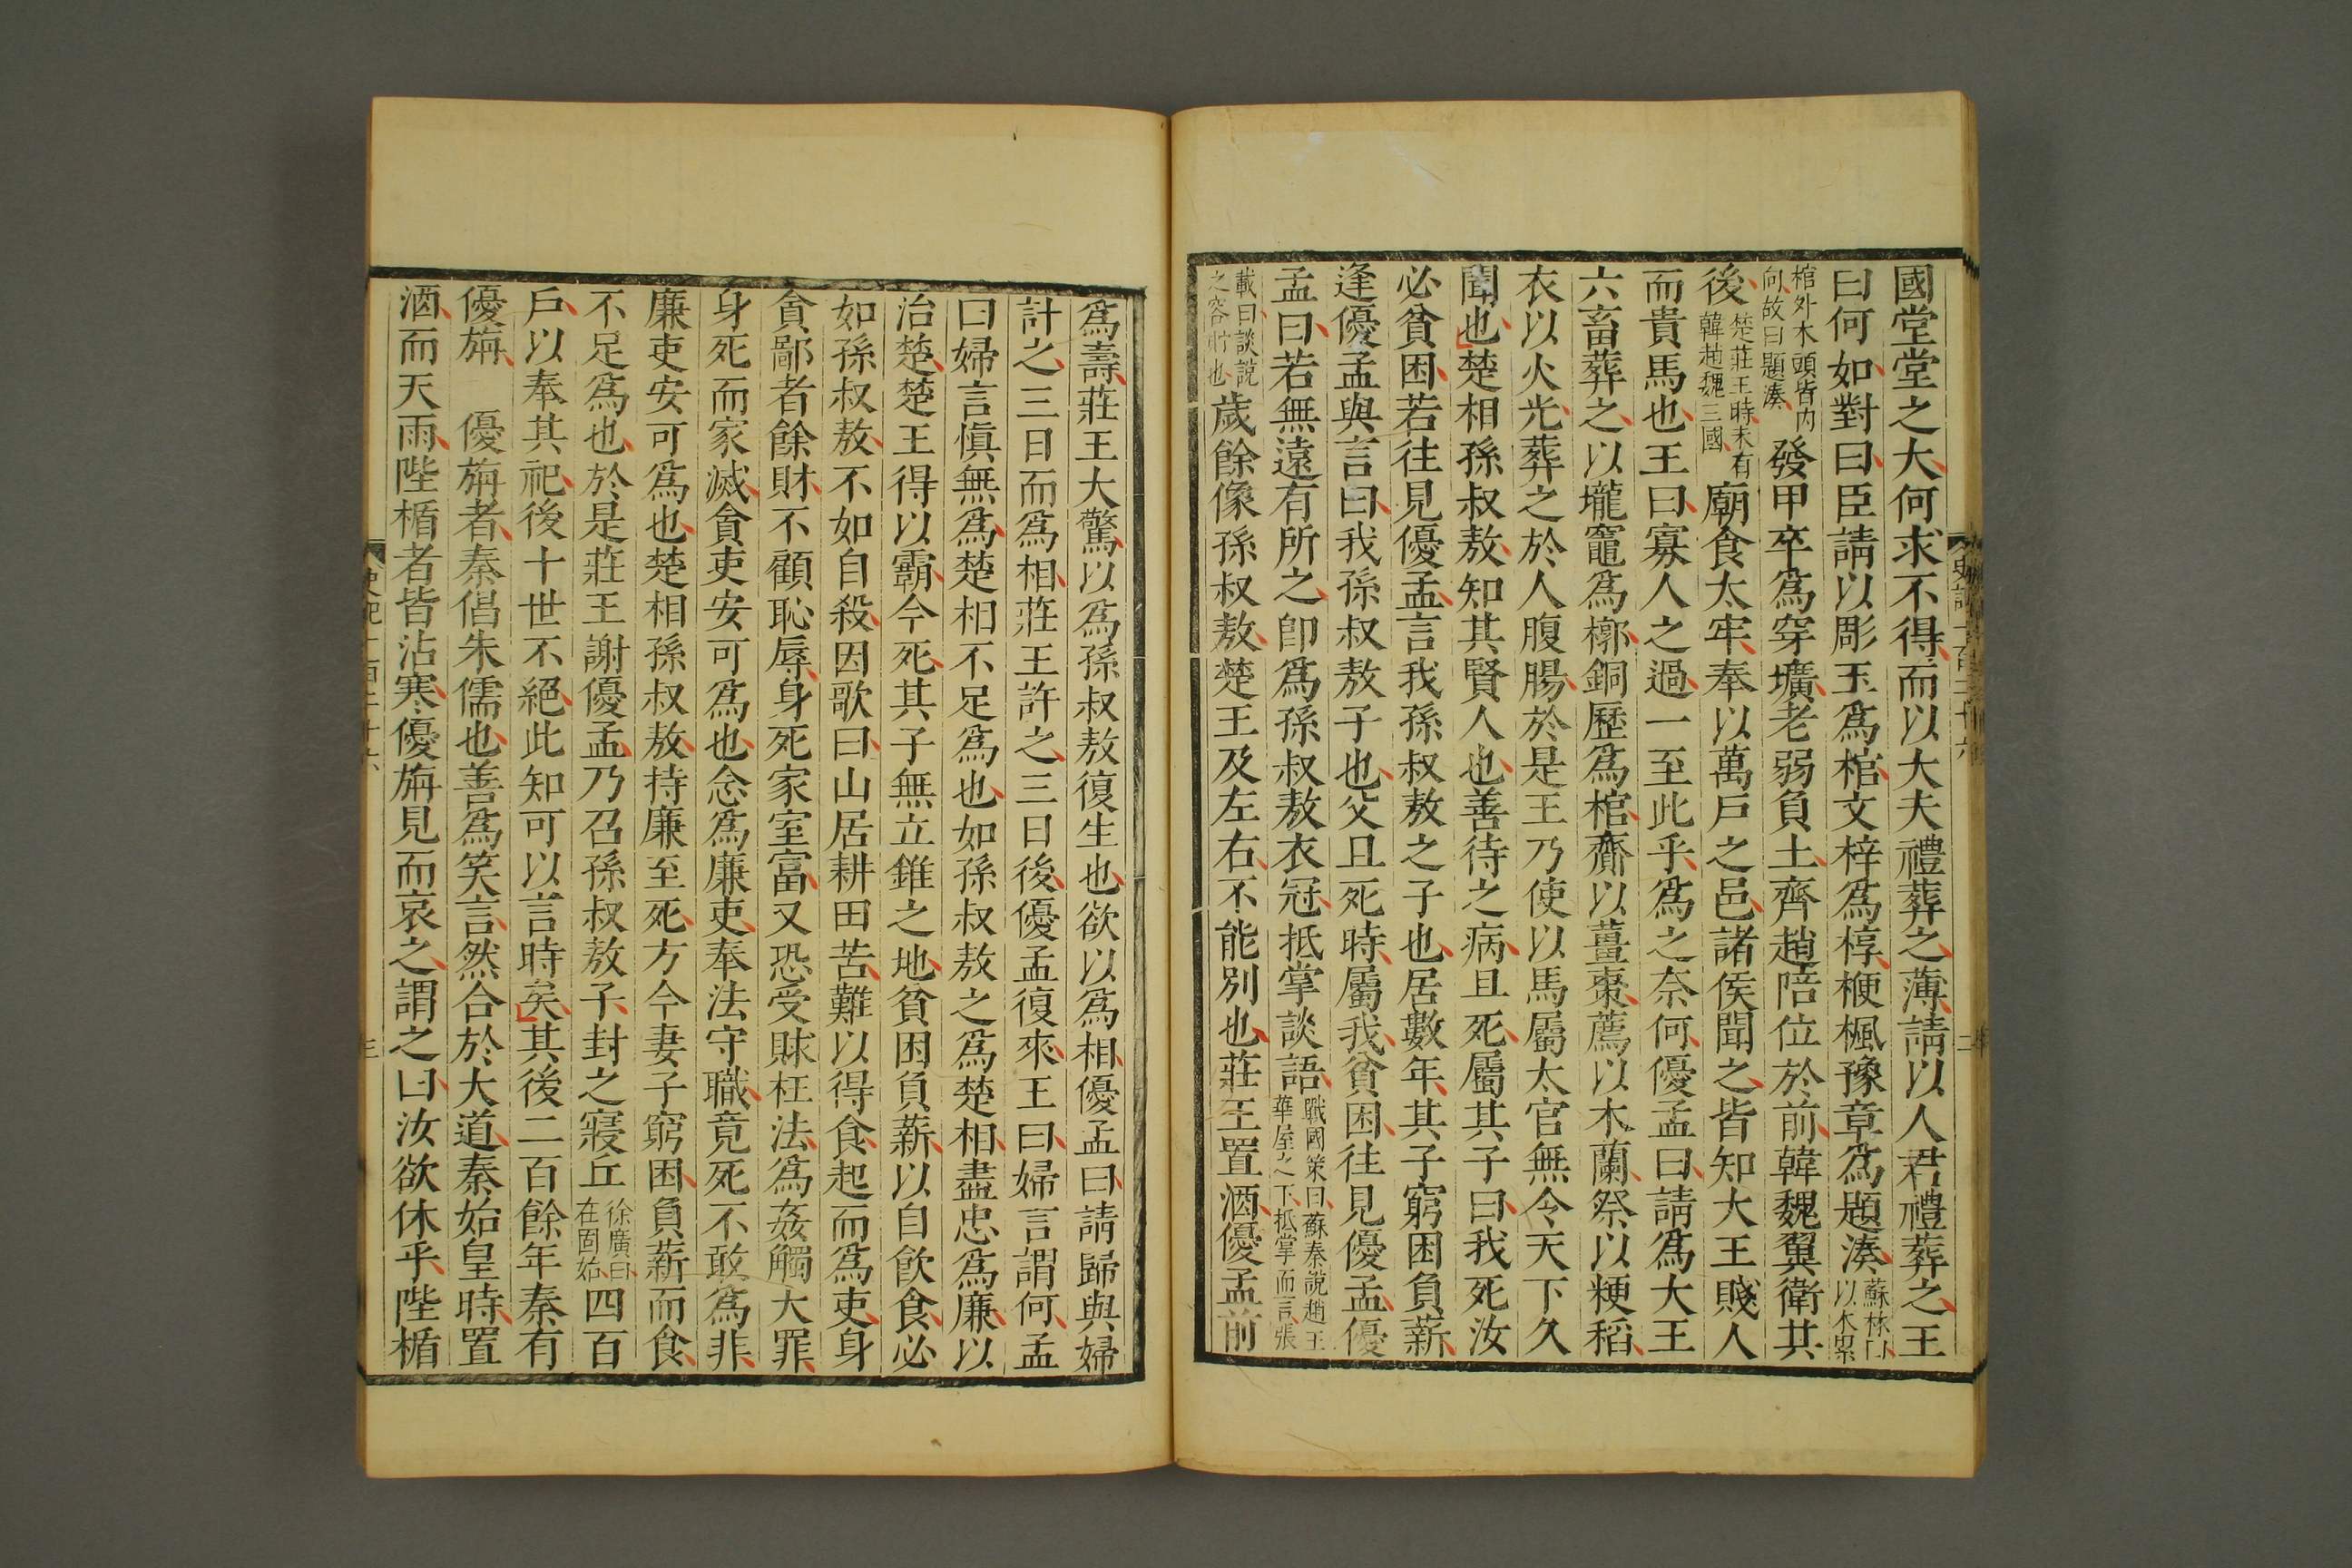 國堂堂之大何求不得而以大夫禮葬之薄請以人君禮葬之王
曰何如對曰臣請以彫玉爲棺文梓爲椁楩楓豫章爲題湊蘇林曰以木累
棺外木頭皆內向故曰題湊發甲卒爲穿壙老弱負土齊趙陪位於前韓魏翼衛其
後楚莊王時未有韓趙魏三國廟食太牢奉以萬戶之邑諸侯聞之皆知大王賤人
而貴馬也王曰寡人之過一至此乎爲之奈何優孟曰請爲大王
六畜葬之以壠竈爲槨銅歷爲棺齎以薑棗薦以木蘭祭以粳稻
衣以火光葬之於人腹腸於是王乃使以馬屬太官無令天下久
聞也楚相孫叔敖知其賢人也善待之病且死屬其子曰我死汝
必貧困若往見優孟言我孫叔敖之子也居數年其子窮困負薪
逢優孟與言曰我孫叔敖子也父且死時屬我貧困往見優孟優
孟曰若無遠有所之卽爲孫叔敖衣冠抵掌談語戰國策曰蘇秦說趙王華屋之下抵掌而言張
載曰談說之容皃也歲餘像孫叔敖楚王及左右不能別也莊王置酒優孟前
爲壽莊王大驚以爲孫叔敖復生也欲以爲相優孟曰請歸與婦
計之三日而爲相莊王許之三日後優孟復來王曰婦言謂何孟
曰婦言愼無爲楚相不足爲也如孫叔敖之爲楚相盡忠爲廉以
治楚楚王得以霸今死其子無立錐之地貧困負薪以自飮食必
如孫叔敖不如自殺因歌曰山居耕田苦難以得食起而爲吏身
貪鄙者餘財不顧恥辱身死家室富又恐受賕枉法爲姦觸大罪
身死而家滅貪吏安可爲也念爲廉吏奉法守職竟死不敢爲非
廉吏安可爲也楚相孫叔敖持廉至死方今妻子窮困負薪而食
不足爲也於是莊王謝優孟乃召孫叔敖子封之寢丘徐廣曰在固始四百
戶以奉其祀後十世不絕此知可以言時矣其後二百餘年秦有
優旃 優旃者秦倡朱儒也善爲笑言然合於大道秦始皇時置
酒而天雨陛楯者皆沾寒優旃見而哀之謂之曰汝欲休乎陛楯
史記一百二十六
二
史記一百二十六
三